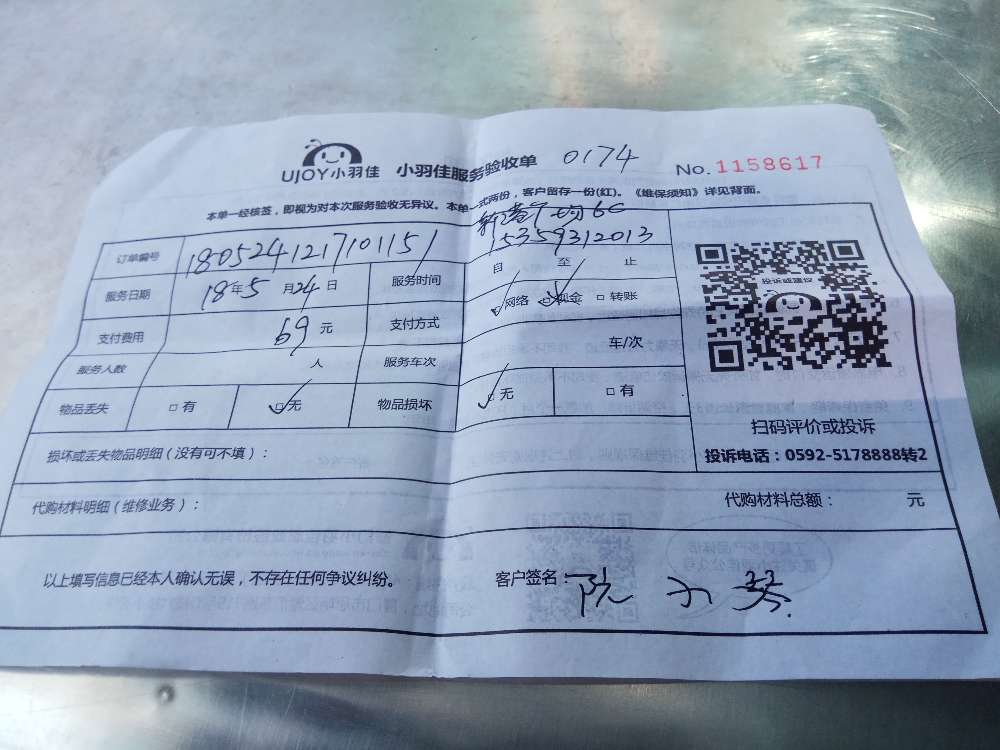 UJOY小羽佳 小羽佳服务验收单 0174 No.1158617
本单一经核签，即视为对本次服务验收无异议。本单一式两份，客户留存一份(红)。《维保须知》详见背面。
订单编号 180524121710115 15359312013
服务日期 18年5月24日 服务时间 自 至 止
支付费用 69元 支付方式 网络 现金 转账
服务人数 人 服务车次 车/次
物品丢失 有 无 物品损坏 无 有
投诉或建议
扫码评价或投诉
投诉电话：0592-5178888转2
损坏或丢失物品明细（没有可不填）：
代购材料明细（维修业务）： 代购材料总额： 元
以上填写信息已经本人确认无误，不存在任何争议纠纷。 客户签名： 阮小琴